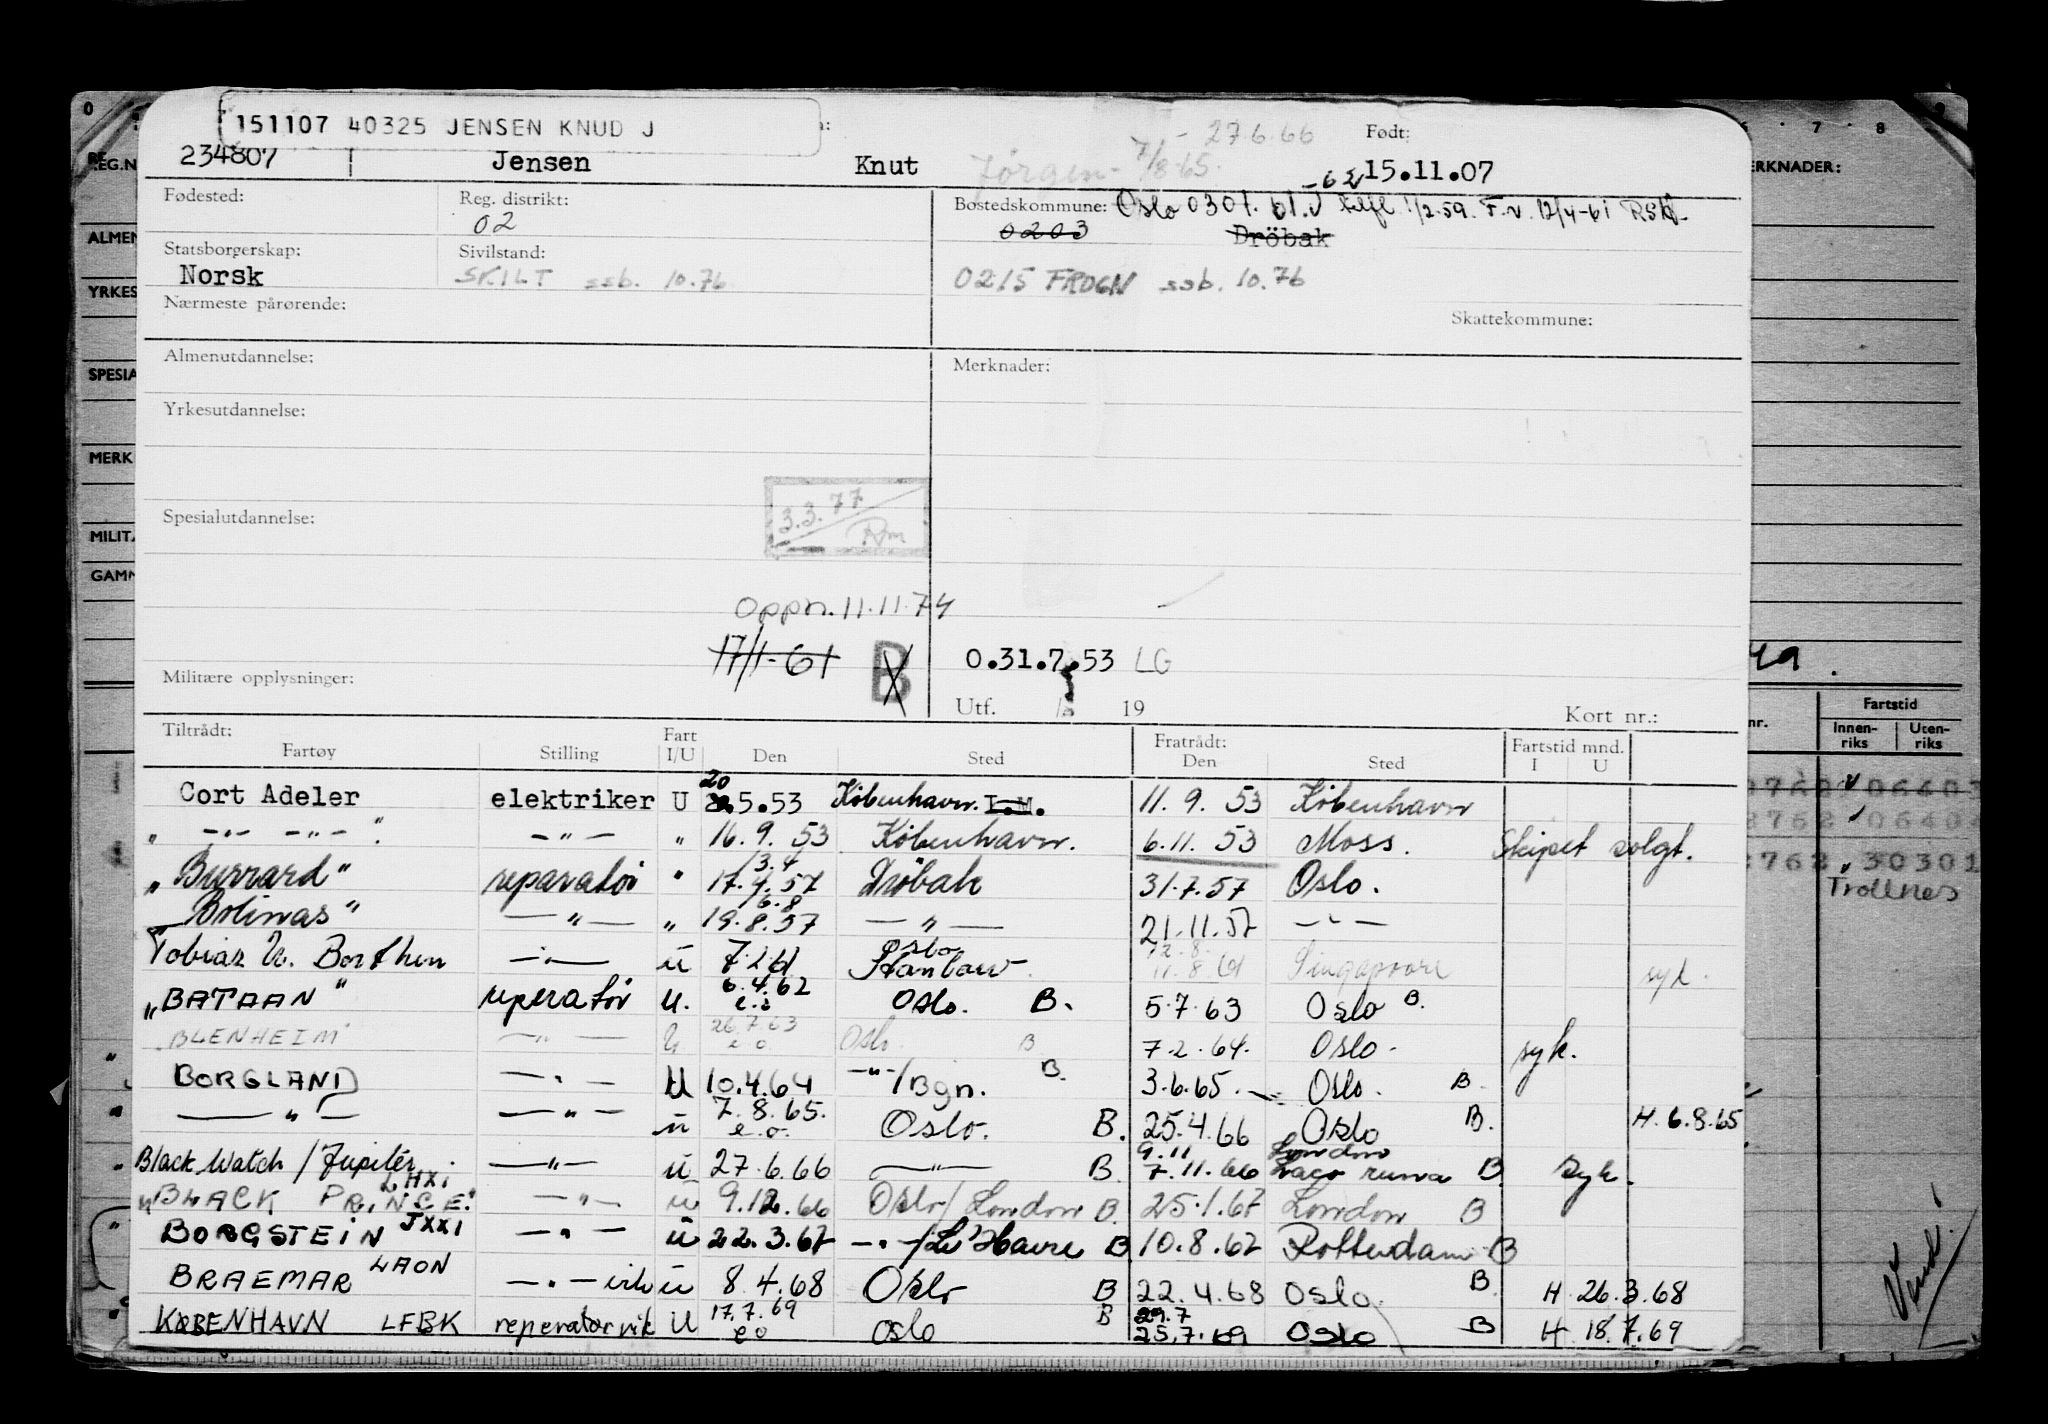 151107 40325 JENSEN KNUD J
234807 Jensen Knut Jørgen - 7/8-65. - 27.6.66 Født: 15.11.07
Fødested: Reg. distrikt: 02 Bostedskommune: Oslo 0301. 1/2-59. F.v. 12/4-61
0203 Dröbak
Statsborgerskap: Norsk Sivilstand: SKILT ssb. 10.76 0215 FROGN ssb. 10.76
Nærmeste pårørende: Skattekommune:
Almenutdannelse: Merknader:
Yrkesutdannelse:
3.3.77
Spesialutdannelse: Rm
Oppn. 11.11.74
17/1-61 B 0.31.7.53 LG
Militære opplysninger: Utf. 19 Kort nr.:
Tiltrådt: Fartøy Stilling Fart I/U Den Sted Fratrådt: Den Sted Fartstid mnd. I U
Cort Adeler elektriker U 20 5.53 København. I.M. 11.9.53 København
" -"- -"- " -"- " 16.9.53 København. 6.11.53 Moss. Skipet solgt.
"Burrard" reparatör " 13.4 17.4.57 Dröbak 31.7.57 Oslo.
"Bolinas" -"- " 16.8 19.8.57 -"- 21.11.57 -"-
Tobias U. Borthen -"- u 7.2.61 Oslo 12.8. 11.8.61 Singapoore syk.
"BATAAN" reperatör U. 6.4.62 e.o Oslo. B. 5.7.63 Oslo B.
BLENHEIM -"- U 26.7.63 e.o Oslo. B 7.2.64. Oslo. syk.
BORGLAND -"- U 10.4.64 -"-/Bgn. B. 3.6.65. Oslo. B.
-"- -"- u 7.8.65. e.o. Oslo. B. 25.4.66 Oslo B. H. 6.8.65
Black Watch / Jupiter. -"- u 27.6.66 -"- B 9.11 London 7.11.66 B. Syk.
"BLACK PRINCE" LAXI -"- u 9.12.66 Oslo/London B. 25.1.67 London B
BORGSTEIN JXXI -"- u 22.3.67 -"-/Le Havre B 10.8.67 Rotterdam B
BRAEMAR LAON -"- vik u 8.4.68 Oslo B 22.4.68 Oslo. B. H. 26.3.68
KØBENHAVN LFBK reperatör vik U 17.7.69 e.o Oslo B 29.7 25.7.69 Oslo B H 18.7.69
REG.N
ALMEN
YRKES
SPESIA
MERK
MILITÆ
GAMM
0
7 8
ERKNADER:
nr. Fartstid
Innen-riks Uten-riks
06403
8762 06404
8762 30301
Trollnes